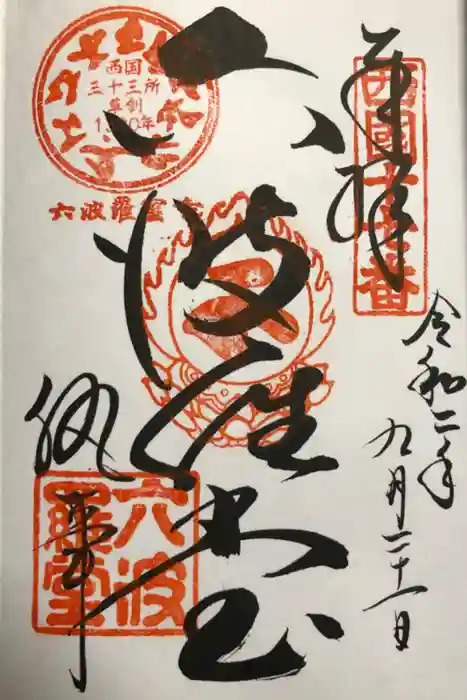 奉拝
西國十七番
令和二年
九月二十一日
六波羅堂
西国
三十三所
草創
1300年
六波羅蜜寺
執筆
六波
羅堂